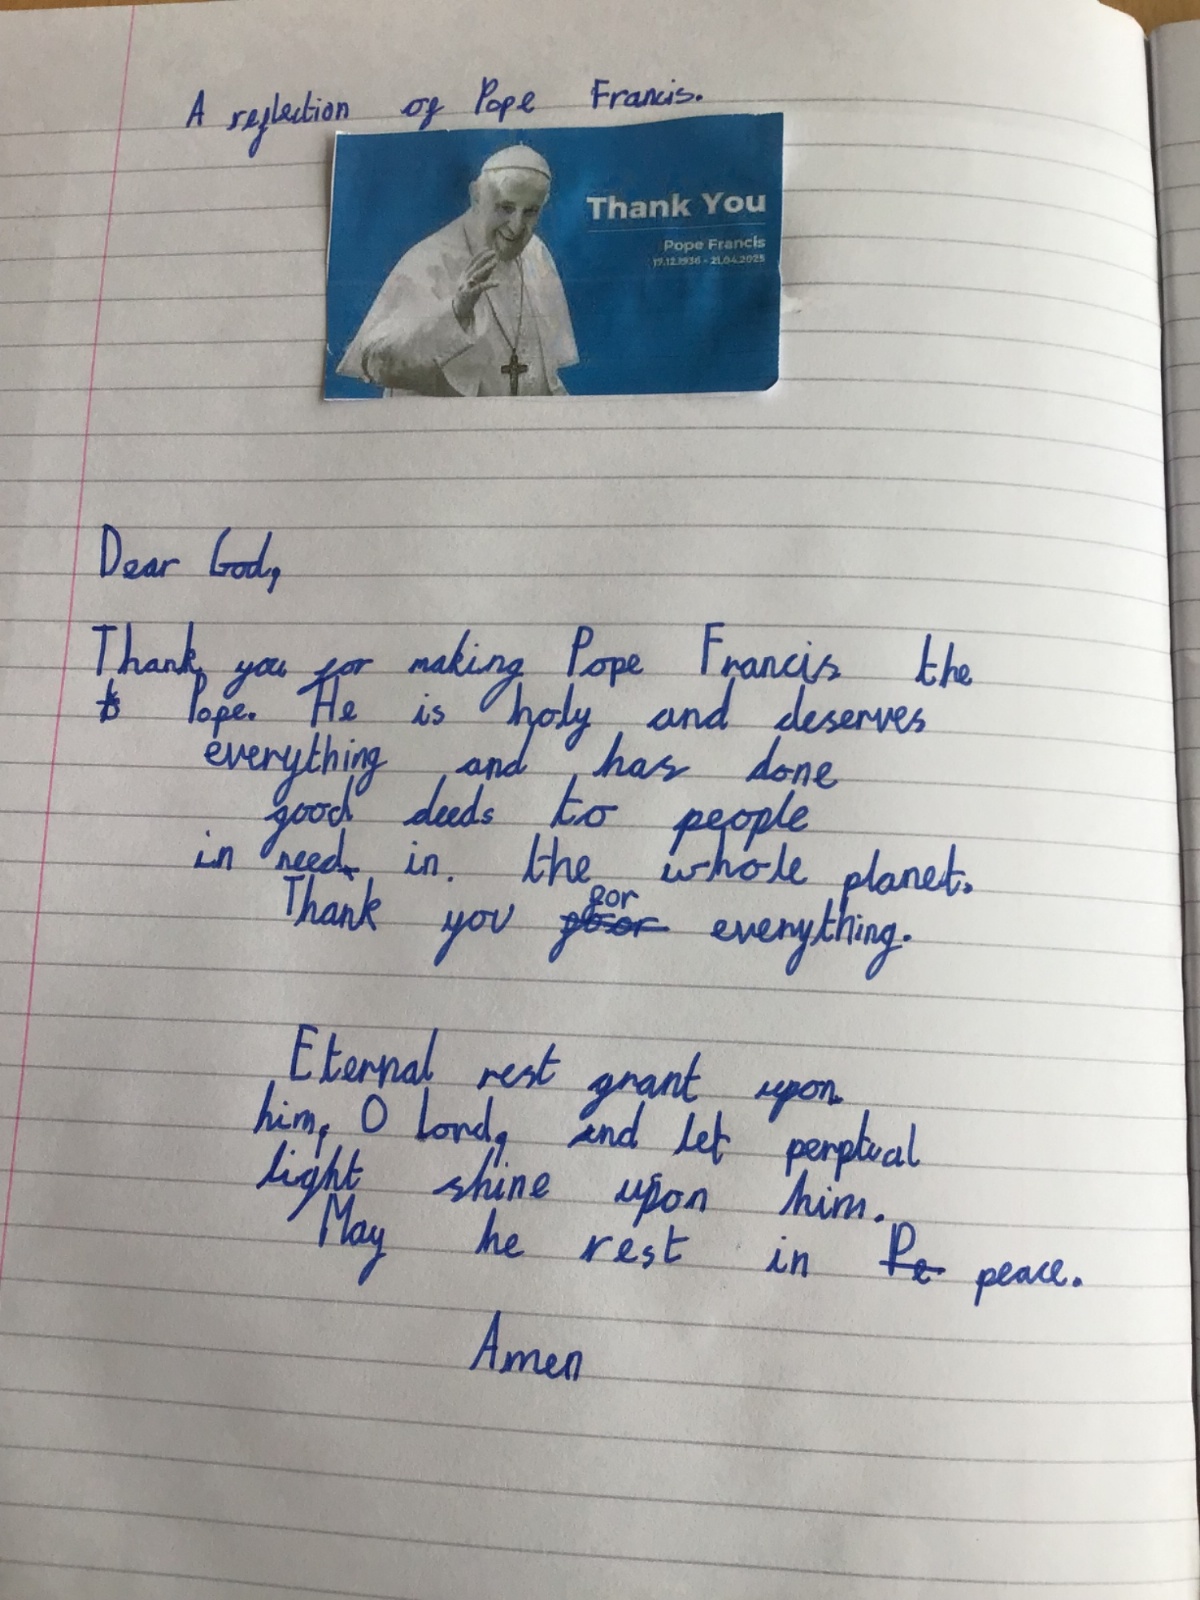 A reflection of Pope Francis.
Thank You
Pope Francis
17.12.1936 - 21.04.2025
Dear God,
Thank you for making Pope Francis the
Pope. He is holy and deserves
everything and has done
good deeds to people
in need in. the whole planet.
Thank you for everything.
Eternal rest grant upon
him, O lord, and let perptual
light shine upon him.
May he rest in Pe peace.
Amen